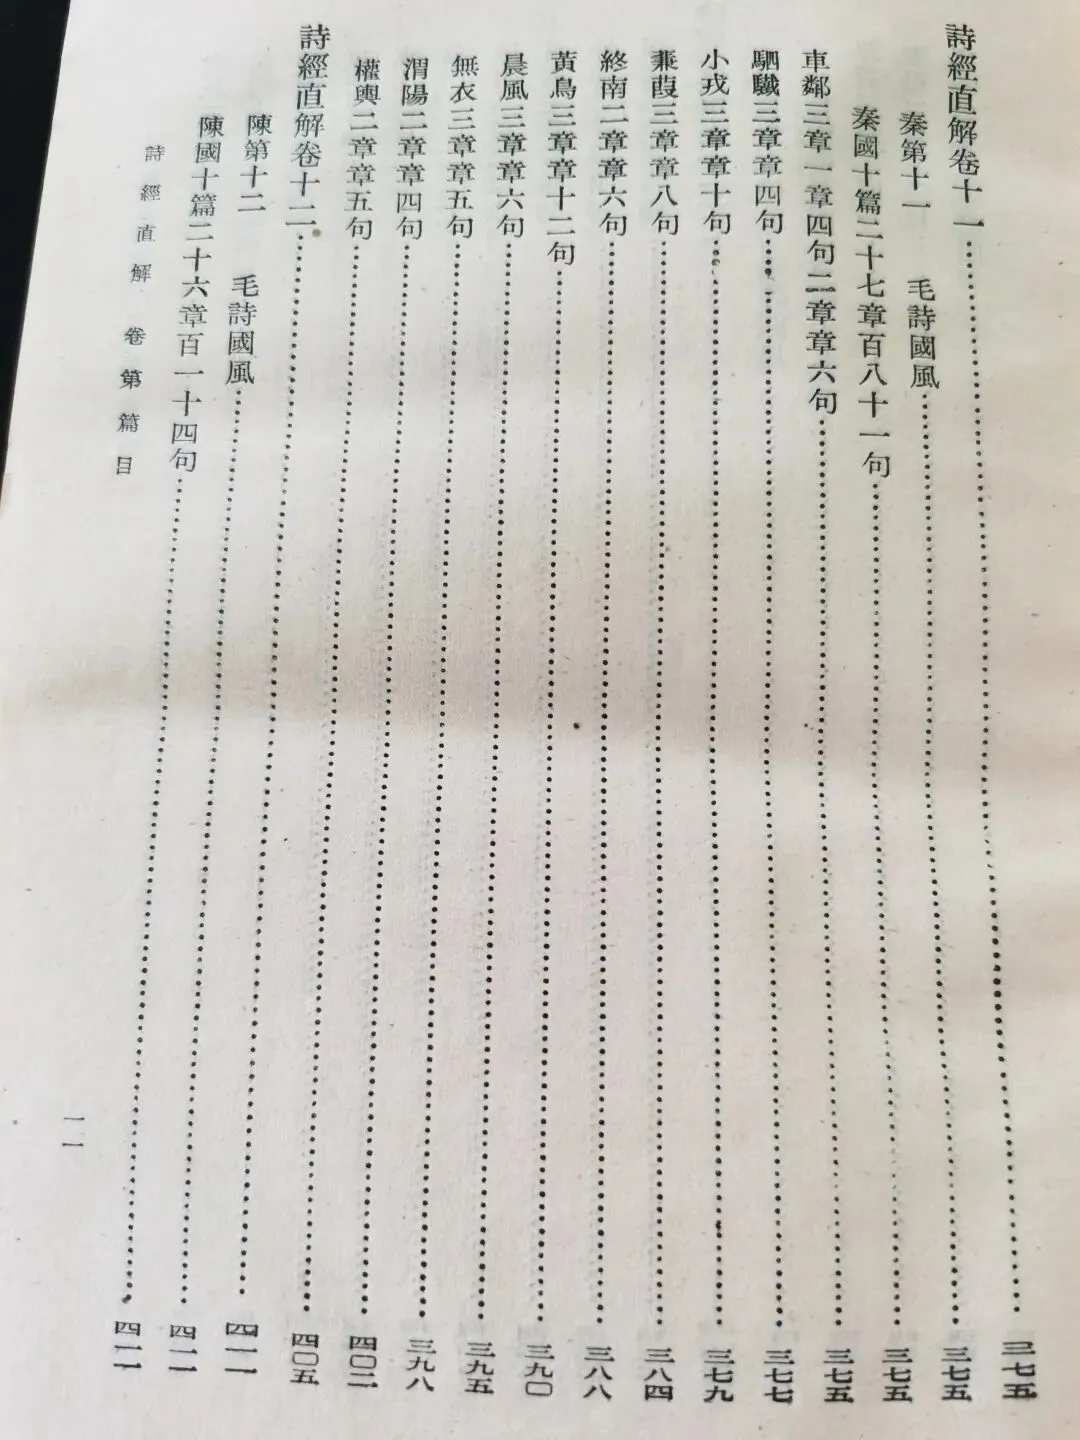 詩經直解卷十一……三七五
秦第十一 毛詩國風……三七五
秦國十篇二十七章百八十一句……三七五
車鄰三章一章四句二章章六句……三七五
駟驖三章章四句……三七七
小戎三章章十句……三七九
蒹葭三章章八句……三八四
終南二章章六句……三八八
黃鳥三章章十二句……三九〇
晨風三章章六句……三九五
無衣三章章五句……三九八
渭陽二章章四句……四〇二
權輿二章章五句……四〇五
詩經直解卷十二……四一一
陳第十二 毛詩國風……四一一
陳國十篇二十六章百一十四句……四一一
詩經直解 卷第篇目
一一